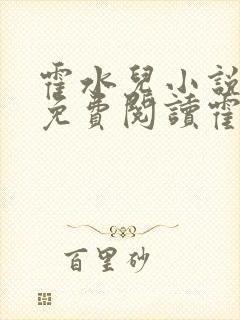 霍水兒小說
免費閱讀霍
百里砂